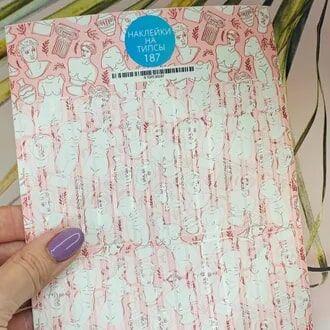 НАКЛЕЙКИ
НА
ТИПСЫ
187